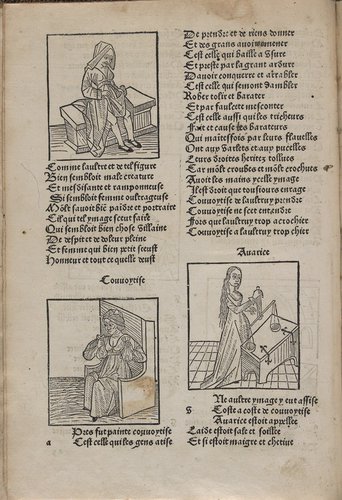 Comme laultre et de tel figure
Bien sembloit male creature
Et mesdisante et ramponneuse
Si sembloit femme oultrageuse
Mõlt sauoit biẽ paĩdre et portraire
Cil qui tel ymage sceut faire
Qui sembloit bien chose villaine
De despit et doleur pleine
Et femme qui bien petit sceust
Honneur et tout ce quelle deust
Couuoytise
Pres fut painte couuoytise
a Cest celle qui les gens atise
De prendre et de riens donner
Et des grans auoir
Cest celle qui baille a usure
Et preste par la grant ardure
Dauoir conquerre et
Cest celle qui semont dambler
Rober tolir et barater
Et par faulcete mesconter
Cest celle aussi qui les tricheurs
Fait et cause les barateurs
Qui maintesfois par leurs flauelles
Ont aux varlets et aux pucelles
Leurs droites heritez tollues
Car mõlt croubtes et mõlt crochues
Auoit les mains ycelle ymage
Il est droit que tousiours enrage
Couuoytise de laultruy prendre
Couuoytise ne scet entendre
Fors que laultruy trop acrochier
Couuoytise a laultruy trop chier
Auarice
Ne aultre ymage y eut assise
Coste a coste de couuoytise
Auarice estoit appellee
Laide estoit sale et foillee
Et si estoit maigre et chetiue